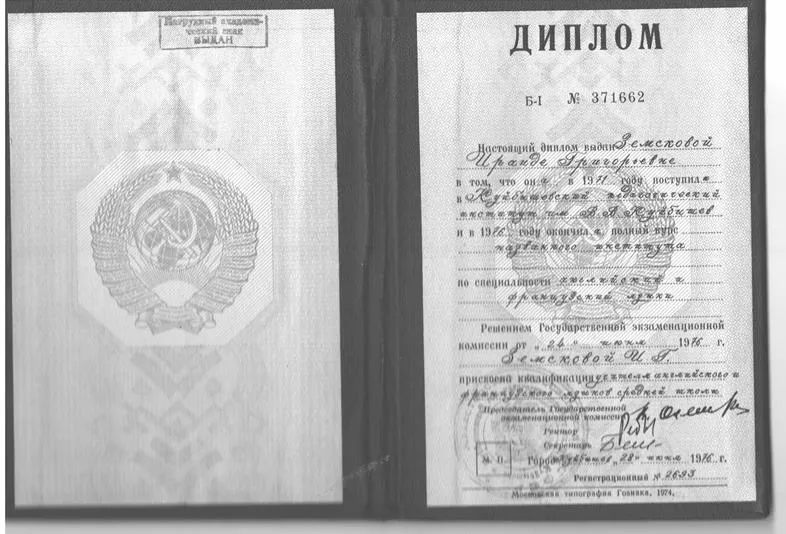 Нагрудный академи-
ческий знак
ВЫДАН
ДИПЛОМ
Б-I № 371662
Настоящий диплом выдан Земсковой
Ираиде Григорьевне
в том, что она в 1971 году поступила
в Куйбышевский педагогический
институт им. В. В. Куйбышев
и в 1976 году окончила полный курс
названного института
по специальности английский и
французский языки
Решением Государственной экзаменационной
комиссии от „24“ июня 1976 г.
Земсковой И. Г.
присвоена квалификация учителя английского и
французского языков средней школы
Председатель Государственной
экзаменационной комиссии
Ректор
Секретарь
М. П. Город Куйбышев „28“ июня 1976 г.
Регистрационный № 2693
Московская типография Гознака. 1974.